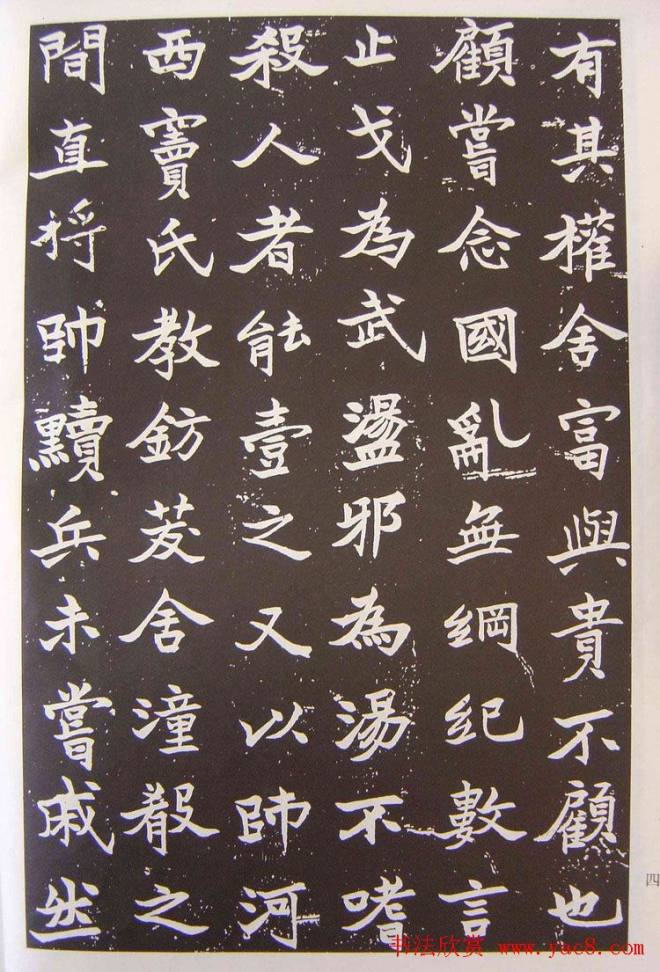 有其權舍富與貴不顧也
顧嘗念國亂無綱紀數言
止戈為武盪邪為湯不嗜
殺人者能壹之又以師河
西竇氏教鈁茇舍潼殽之
間直將帥黷兵未嘗戚然
四
书法欣赏 www.yac8.com